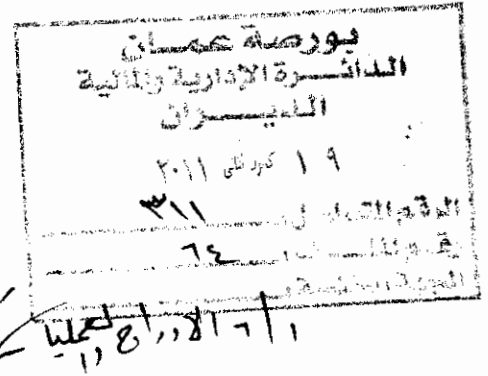 بورصة عمان
الدائرة الإدارية والمالية
الديوان
١٩ كانون ثاني ٢٠١١
الرقم المتسلسل ٣١١
رقم الملف ٦٤
الجهة المختصة
الادراج